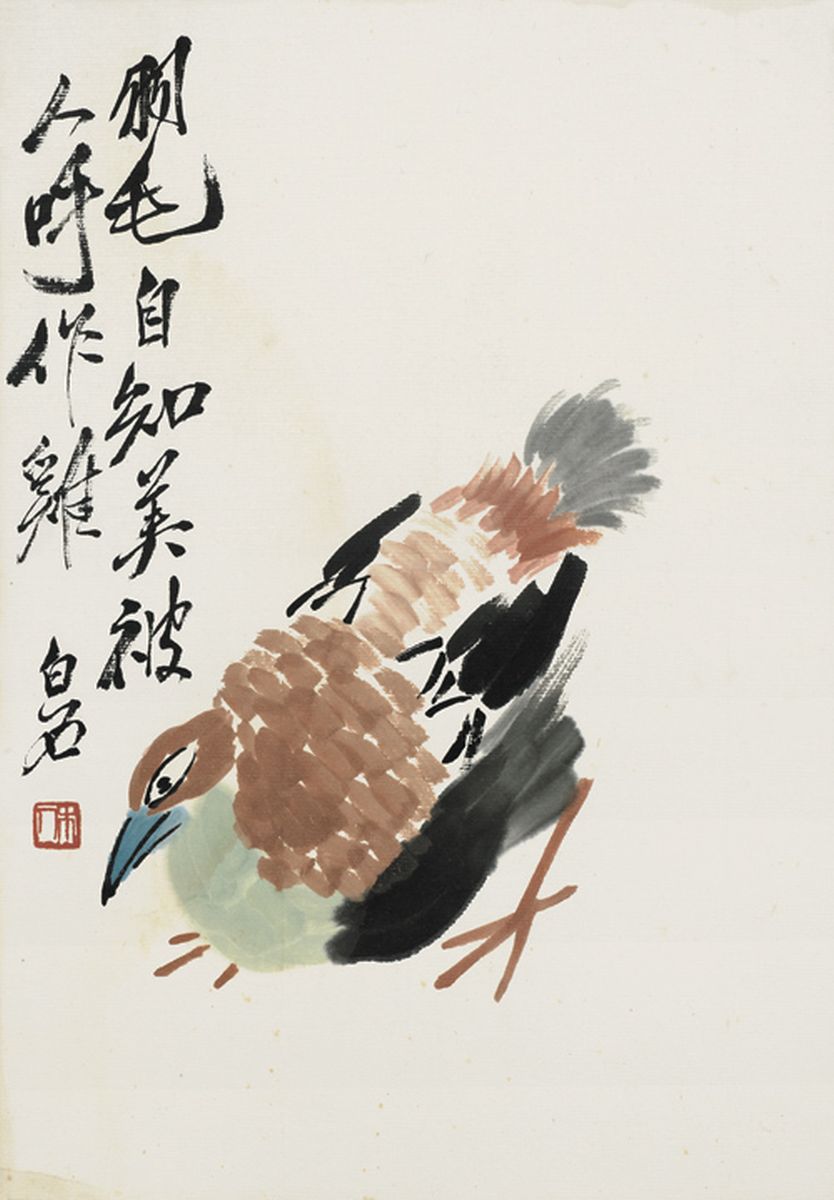 羽毛自知美被
人呼作雞
白石
木人